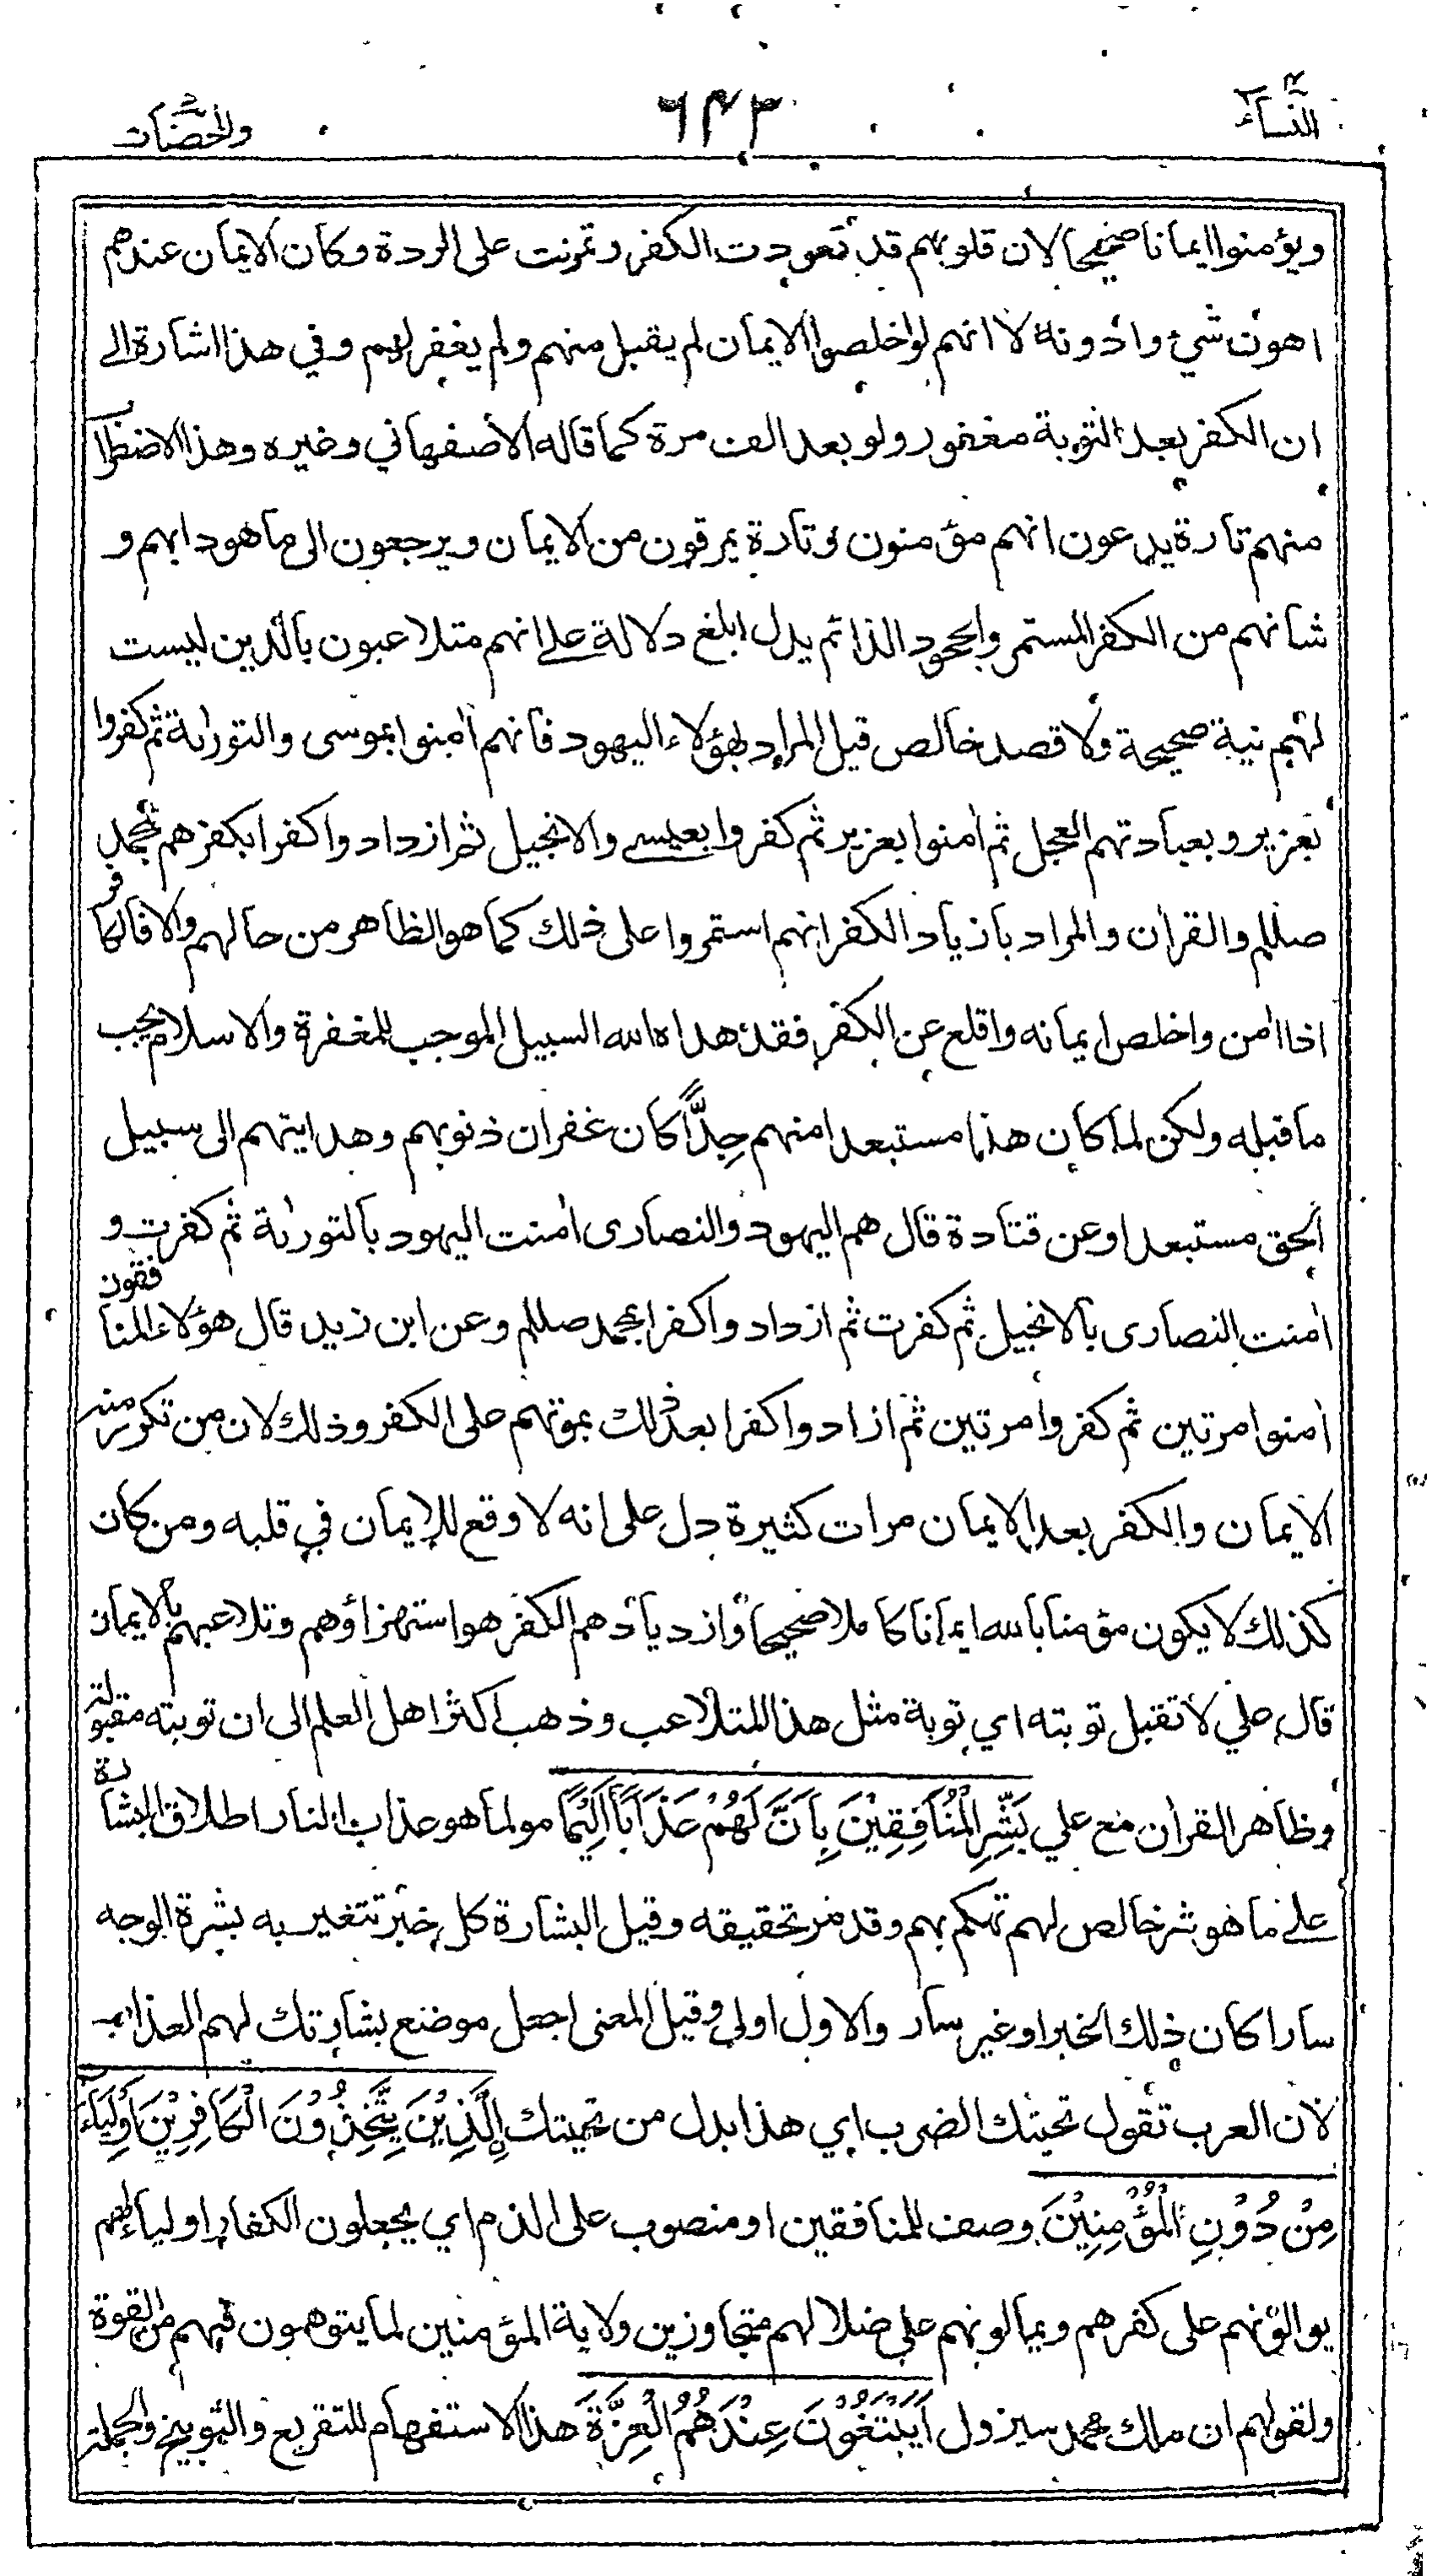 النساء ٤
٦٤٣
والمحصنات
ويؤمنوا ايمانا صحيحا لان قلوبهم قد تعودت الكفر وتمرنت على الردة وكان الايمان عندهم
اهون شيء وادونه لا انهم لو اخلصوا الايمان لم يقبل منهم ولم يغفر لهم وفي هذا اشارة الى
ان الكفر بعد التوبة مغفور ولو بعد الف مرة كما قاله الاصفهاني وغيره وهذا الاضطراب
منهم تارة يدعون انهم مؤمنون وتارة يمرقون من الايمان ويرجعون الى ما هو دابهم و
شانهم من الكفر المستمر والجحود الدائم يدل ابلغ دلالة على انهم متلاعبون بالدين ليست
لهم نية صحيحة ولا قصد خالص قيل المراد بهؤلاء اليهود فانهم اٰمنوا بموسى والتورىة ثم كفروا
بعزير وبعبادتهم العجل ثم اٰمنوا بعزير ثم كفروا بعيسى والانجيل ثم ازدادوا كفرا بكفرهم بمحمد
صللم والقراٰن والمراد بازدياد الكفر انهم استمروا على ذلك كما هو الظاهر من حالهم والا فالكافر
اذا اٰمن واخلص ايمانه واقلع عن الكفر فقد هداه الله السبيل الموجب للمغفرة والاسلام يجب
ما قبله ولكن لما كان هذا مستبعدا منهم جِدًّا كان غفران ذنوبهم وهدايتهم الى سبيل
الحق مستبعدا وعن قتادة قال هم اليهود والنصارى اٰمنت اليهود بالتورىة ثم كفرت و
اٰمنت النصارى بالانجيل ثم كفرت ثم ازدادوا كفرا بمحمد صللم وعن ابن زيد قال هؤلاء المنافقون
اٰمنوا مرتين ثم كفروا مرتين ثم ازدادوا كفرا بعد ذلك بموتهم على الكفر وذلك لان من تكرر منه
الايمان والكفر بعد الايمان مرات كثيرة دل على انه لا وقع للايمان في قلبه ومن كان
كذلك لا يكون مؤمنا بالله ايمانا كاملا صحيحا وازديادهم الكفر هو استهزاؤهم وتلاعبهم بالايمان
قال علي لا تقبل توبته اي توبة مثل هذا المتلاعب وذهب اكثر اهل العلم الى ان توبته مقبولة
وظاهر القراٰن مع علي بَشِّرِ الْمُنَافِقِيْنَ بِاَنَّ لَهُمْ عَذَابًا اَلِيْمًا مولما هو عذاب النار اطلاق البشارة
على ما هو شر خالص لهم تهكم بهم وقد مر تحقيقه وقيل البشارة كل خبر تتغير به بشرة الوجه
سارا كان ذلك الخبر او غير سار والاول اولى وقيل المعنى اجعل موضع بشارتك لهم العذاب
لان العرب تقول تحيتك الضرب اي هذا بدل من تحيتك اِلَّذِيْنَ يَتَّخِذُوْنَ الْكَافِرِيْنَ اَوْلِيَاءَ
مِنْ دُوْنِ الْمُؤْمِنِيْنَ وصف للمنافقين او منصوب على الذم اي يجعلون الكفار اولياء لهم
يوالونهم على كفرهم ويمالونهم على ضلالهم متجاوزين ولاية المؤمنين لما يتوهمون فيهم من القوة
ولقولهم ان ملك محمد سيزول اَيَبْتَغُوْنَ عِنْدَهُمُ الْعِزَّةَ هذا الاستفهام للتقريع والتوبيخ والجملة